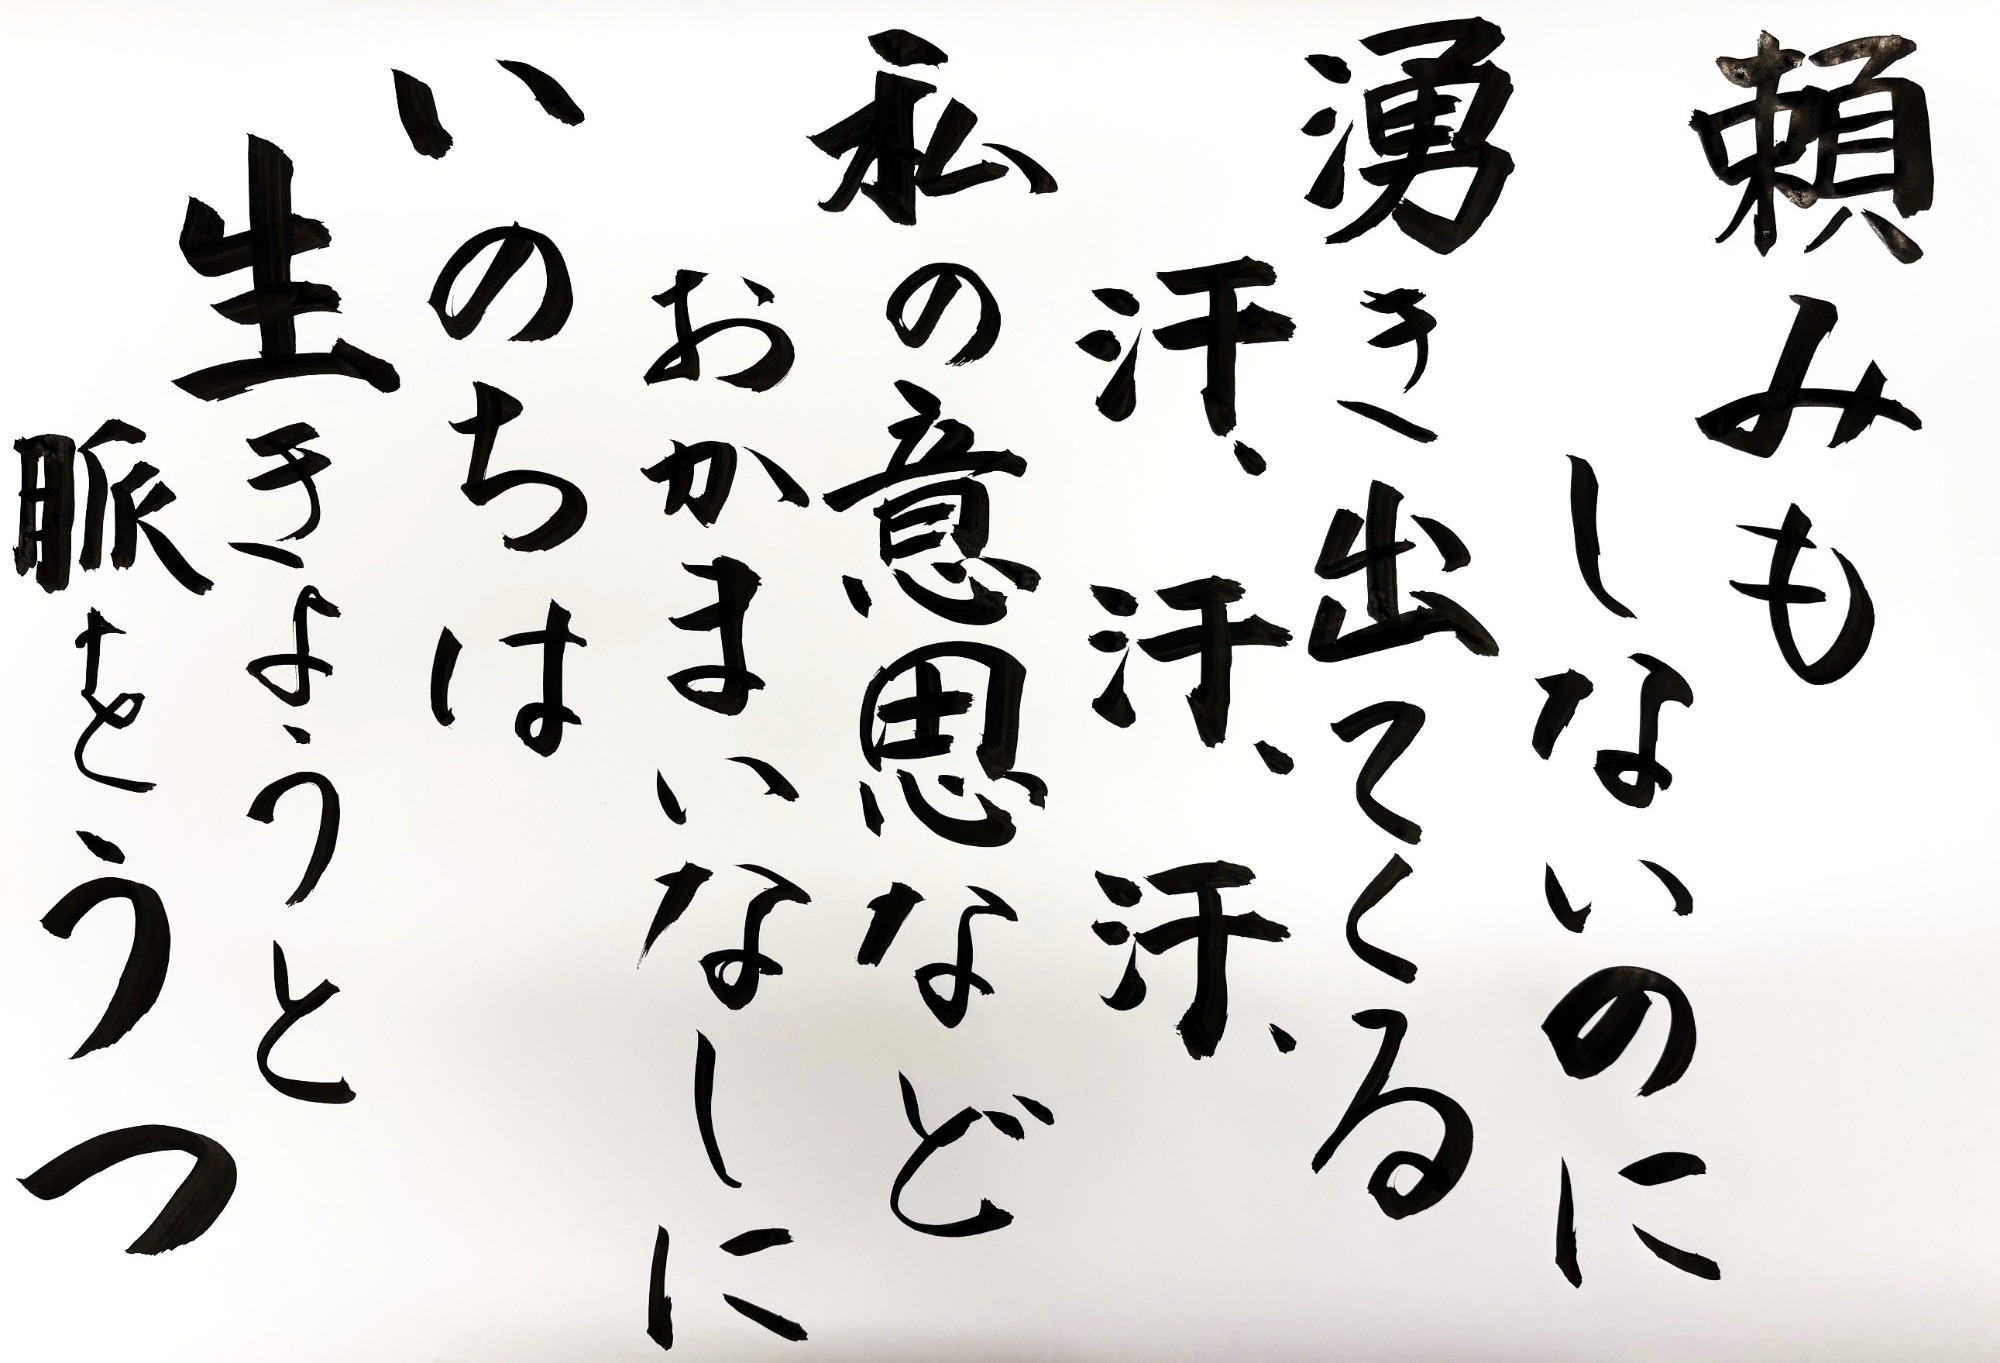 頼みも
しないのに
湧き出てくる
汗、汗、汗、
私の意思など
おかまいなしに
いのちは
生きようと
脈をうつ